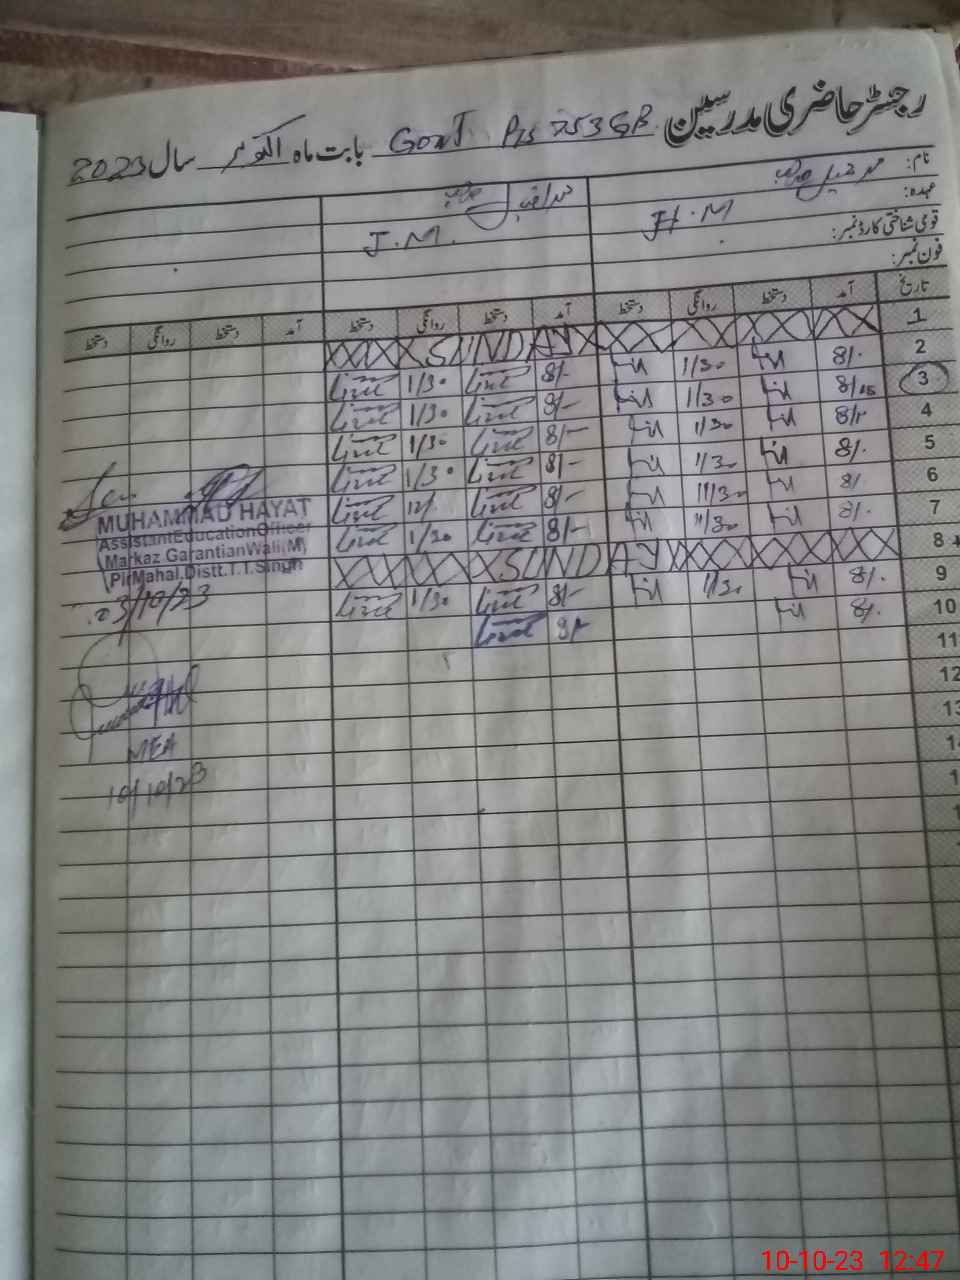 رجسٹر حاضری مدرسین GovT P/S 753 GB بابت ماہ اکتوبر سال 2023
نام:
عہدہ: H.M J.M.
قومی شناختی کارڈ نمبر:
فون نمبر:
تاریخ آمد دستخط روانگی دستخط آمد دستخط روانگی دستخط آمد دستخط روانگی دستخط
1 SUNDAY
2 8/. 1/30 8/- 1/30
3 8/05 1/30 8/- 1/30
4 1/30 8/- 1/30
5 8/. 1/30 8/- 1/30
6 8/. 11/30 8/- 12/.
7 8/. 11/30 8/- 1/30
8 SUNDAY
9 8/. 1/30 8/- 1/30
10 8/. 8/-
11
12
13
MUHAMMAD HAYAT
Assistant Education Officer
Markaz Garantian Wali (M)
Pir Mahal. Distt. T.T.Singh
03/10/23
MEA
10/10/23
10-10-23 12:47